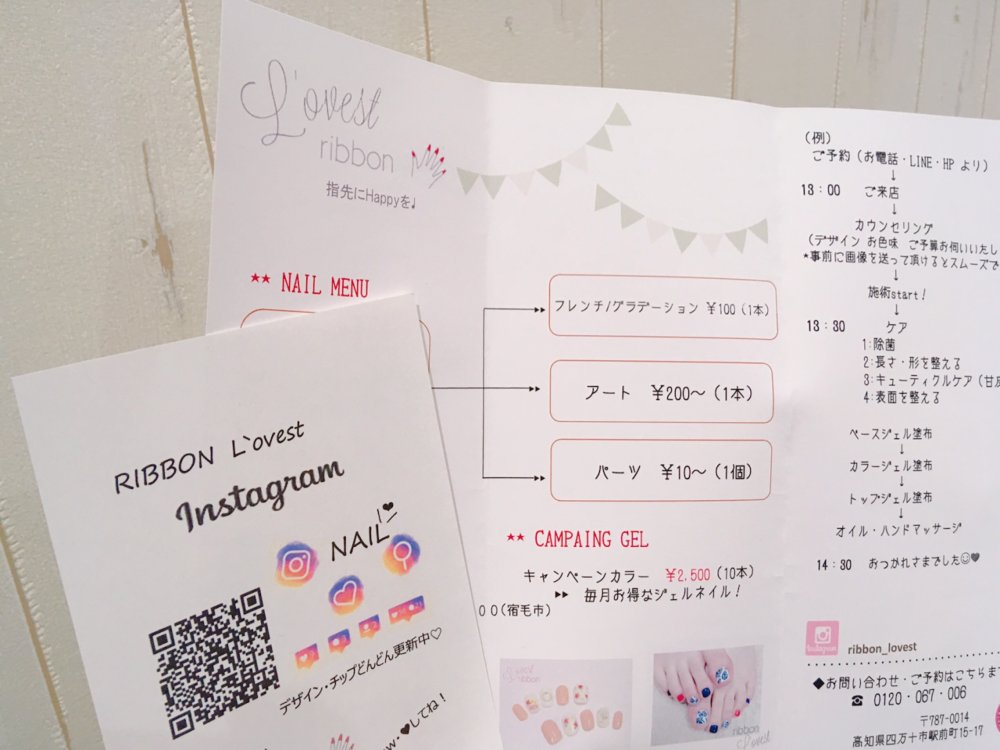 L'ovest
ribbon
指先にHappyを♩
★★ NAIL MENU
フレンチ/グラデーション ￥100（1本）
アート ￥200〜（1本）
パーツ ￥10〜（1個）
★★ CAMPAING GEL
キャンペーンカラー ￥2,500（10本）
▶▶ 毎月お得なジェルネイル！
００（宿毛市）
L'ovest
ribbon
ribbon
L'ovest
（例）
ご予約（お電話・LINE・HP より）
↓
13：00 ご来店
↓
カウンセリング
（デザイン お色味 ご予算お伺いいたし
*事前に画像を送って頂けるとスムーズで
↓
施術start！
↓
13：30 ケア
1:除菌
2:長さ・形を整える
3:キューティクルケア（甘皮
4:表面を整える
ベースジェル塗布
↓
カラージェル塗布
↓
トップジェル塗布
↓
オイル・ハンドマッサージ
14：30 おつかれさまでした☺♥
Instagram
ribbon_lovest
◆お問い合わせ・ご予約はこちらま
☎ 0120‐067‐006
〒787-0014
高知県四万十市駅前町15-17
RIBBON L`ovest
Instagram
NAIL
デザイン・チップどんどん更新中♡
w・♥してね！